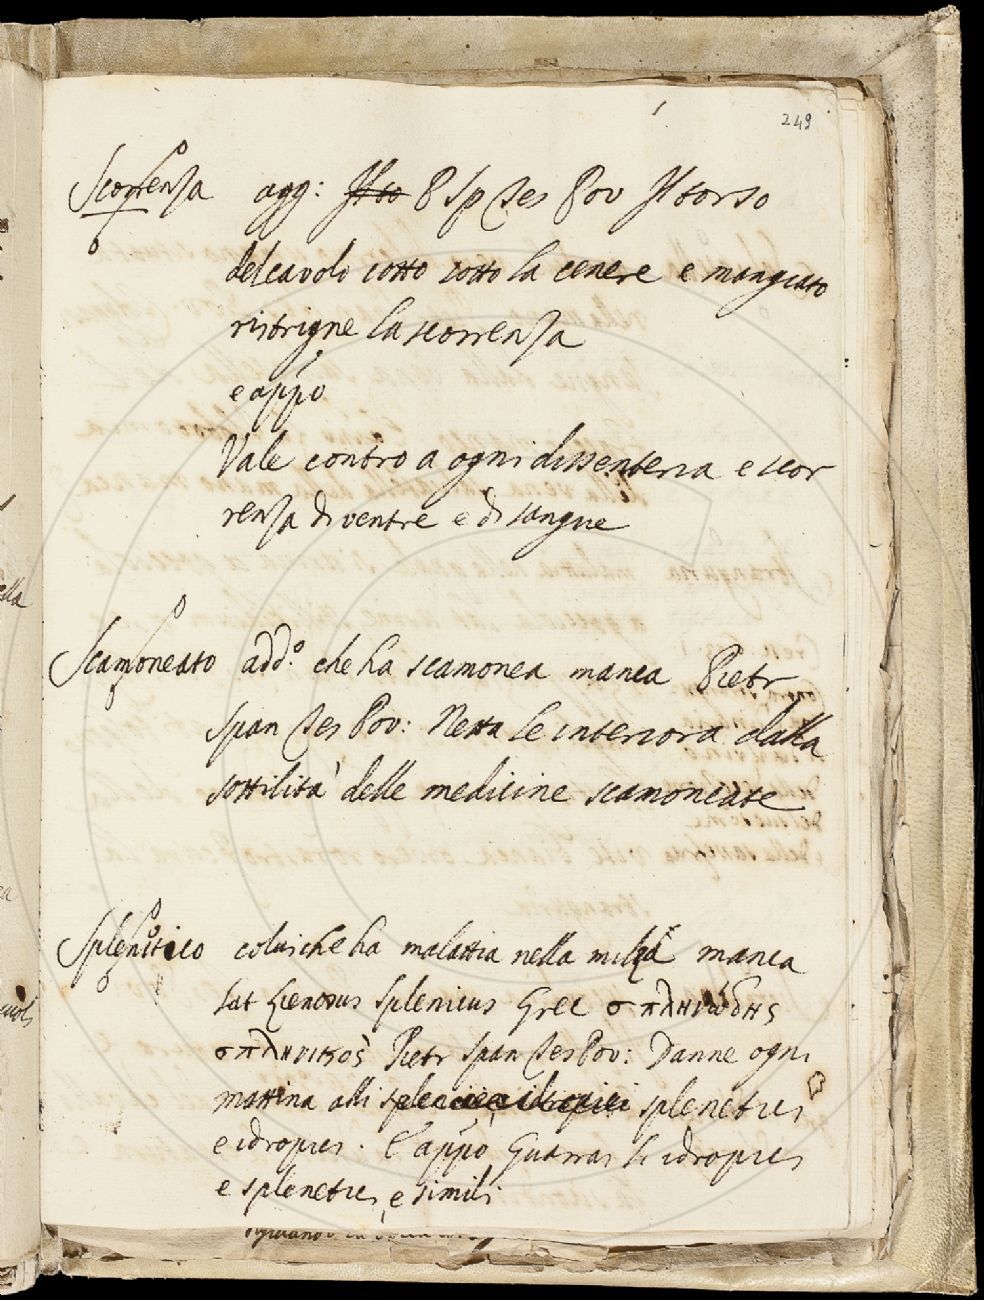 249
Scorrenza agg: Il to P Sp Tes Pov Il torso
del cavolo cotto sotto la cenere e mangiato
ristrigne la scorrenza
e appo
Vale contro a ogni dissenteria e scor
renza di ventre e di sangue
Scamoneato add.o che ha scamonea manca Pietr
Span Tes Pov: Netta le interiora dalla
sottilità delle medicine scamoneate
Splenitico colui che ha malattia nella milza manca
Lat Lienosus Splenicus Grec σπληνώδης
σπληνικὸς Pietr Span Tes Pov: Danne ogni
mattina alli splenetici
e idropici. E appo Guarrai li idropici
e splenetici e simili